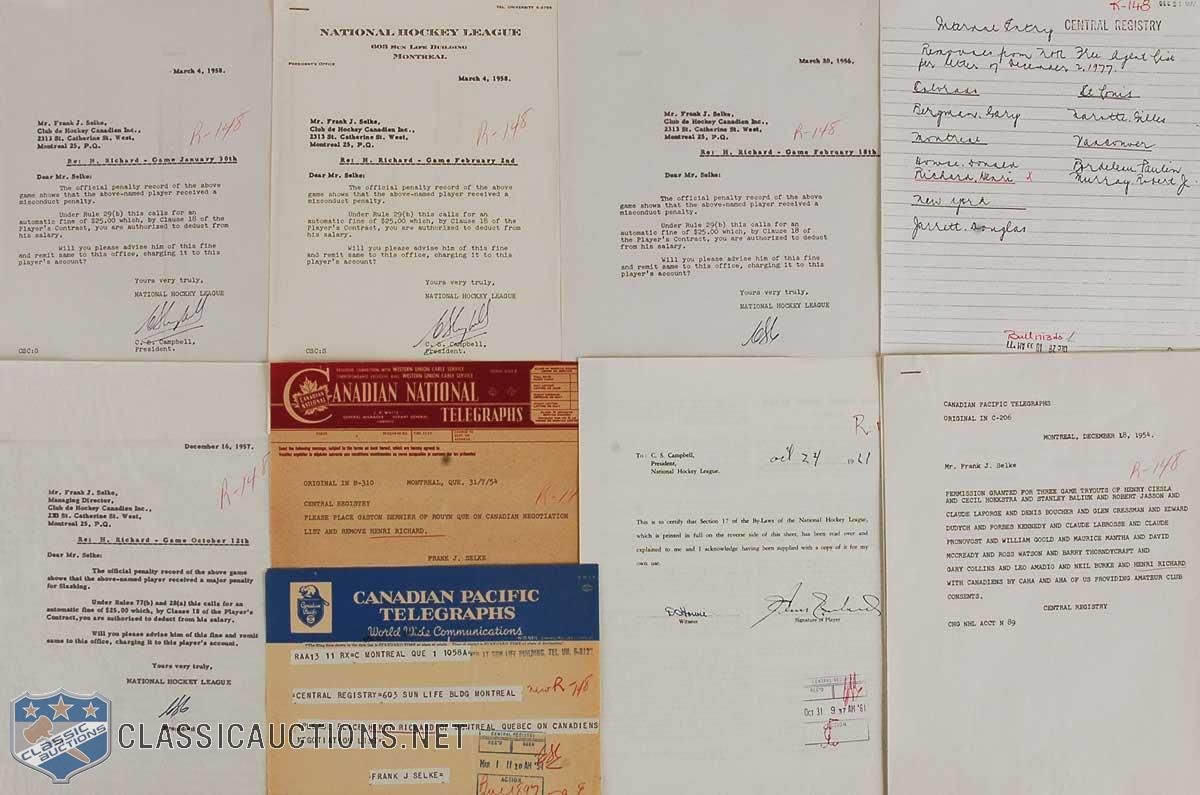 March 4, 1958.
Mr. Frank J. Selke,
Club de Hockey Canadien Inc.,
2313 St. Catherine St. West,
Montreal 25, P.Q.
R-148
Re: H. Richard - Game January 30th
Dear Mr. Selke:
The official penalty record of the above
game shows that the above-named player received a
misconduct penalty.
Under Rule 29(b) this calls for an
automatic fine of $25.00 which, by Clause 18 of the
Player's Contract, you are authorized to deduct from
his salary.
Will you please advise him of this fine
and remit same to this office, charging it to this
player's account?
Yours very truly,
NATIONAL HOCKEY LEAGUE
C. S. Campbell,
President.
CSC:S
TEL. UNIVERSITY 6-8796
NATIONAL HOCKEY LEAGUE
603 SUN LIFE BUILDING
MONTREAL
PRESIDENT'S OFFICE
March 4, 1958.
Mr. Frank J. Selke,
Club de Hockey Canadien Inc.,
2313 St. Catherine St. West,
Montreal 25, P.Q.
R-148
Re: H. Richard - Game February 2nd
Dear Mr. Selke:
The official penalty record of the above
game shows that the above-named player received a
misconduct penalty.
Under Rule 29(b) this calls for an
automatic fine of $25.00 which, by Clause 18 of the
Player's Contract, you are authorized to deduct from
his salary.
Will you please advise him of this fine
and remit same to this office, charging it to this
player's account?
Yours very truly,
NATIONAL HOCKEY LEAGUE
C. S. Campbell,
President.
CSC:S
March 20, 1956.
Mr. Frank J. Selke,
Club de Hockey Canadien Inc.,
2313 St. Catherine St. West,
Montreal 25, P.Q.
R-148
Re: H. Richard - Game February 18th
Dear Mr. Selke:
The official penalty record of the above
game shows that the above-named player received a
misconduct penalty.
Under Rule 29(b) this calls for an
automatic fine of $25.00 which, by Clause 18 of
the Player's Contract, you are authorized to deduct
from his salary.
Will you please advise him of this fine
and remit same to this office, charging it to this
player's account?
Yours very truly,
NATIONAL HOCKEY LEAGUE
R-148
Internal Entry CENTRAL REGISTRY
Removals from NHL Free Agent List
per letter of December 2, 1977.
Colorado St Louis
Bergman, Gary Marotte, Gilles
Montreal Vancouver
Howse, Donald Bordeleau Paulin
Richard, Henri x Murray, Robert Jr.
New York
Jarrett, Douglas
December 16, 1957.
Mr. Frank J. Selke,
Managing Director,
Club de Hockey Canadien Inc.,
2313 St. Catherine St. West,
Montreal 25, P.Q.
R-148
Re: H. Richard - Game October 12th
Dear Mr. Selke:
The official penalty record of the above game
shows that the above-named player received a major penalty
for Slashing.
Under Rules 77(b) and 28(a) this calls for an
automatic fine of $25.00 which, by Clause 18 of the Player's
Contract, you are authorized to deduct from his salary.
Will you please advise him of this fine and remit
same to this office, charging it to this player's account.
Yours very truly,
NATIONAL HOCKEY LEAGUE
CANADIAN NATIONAL
TELEGRAPHS
ORIGINAL IN B-310 MONTREAL, QUE. 31/7/54
CENTRAL REGISTRY
PLEASE PLACE GASTON BERNIER OF ROUYN QUE ON CANADIEN NEGOTIATION
LIST AND REMOVE HENRI RICHARD.
FRANK J. SELKE
CANADIAN PACIFIC
TELEGRAPHS
World Wide Communications
RAA13 11 RX=C MONTREAL QUE 1 1058A=
=CENTRAL REGISTRY=603 SUN LIFE BLDG MONTREAL
new R-148
RICHARD
MONTREAL QUEBEC ON CANADIENS
=FRANK J SELKE=
CENTRAL REGISTRY
REC'D
ACTION
To: C. S. Campbell,
President,
National Hockey League.
Oct 24 1961
This is to certify that Section 17 of the By-Laws of the National Hockey League,
which is printed in full on the reverse side of this sheet, has been read over and
explained to me and I acknowledge having been supplied with a copy of it for my
own use.
Witness
Signature of Player
REC'D
Oct 31 9 37 AM '61
ACTION
CANADIAN PACIFIC TELEGRAPHS
ORIGINAL IN C-206
MONTREAL, DECEMBER 18, 1954.
Mr. Frank J. Selke
R-148
PERMISSION GRANTED FOR THREE GAME TRYOUTS OF HENRY CIESLA
AND CECIL HOEKSTRA AND STANLEY BALIUK AND ROBERT JASSON AND
CLAUDE LAPORGE AND DENIS BOUCHER AND GLEN CRESSMAN AND EDWARD
DUDYCH AND FORBES KENNEDY AND CLAUDE LABROSSE AND CLAUDE
PRONOVOST AND WILLIAM GOOLD AND MAURICE MANTHA AND DAVID
MCCREADY AND ROSS WATSON AND BARRY THORNDYCRAFT AND
GARY COLLINS AND LEO AMADIO AND NEIL BURKE AND HENRI RICHARD
WITH CANADIENS BY CAHA AND AHA OF US PROVIDING AMATEUR CLUB
CONSENTS.
CENTRAL REGISTRY
CHG NHL ACCT N 89
CLASSIC
AUCTIONS
CLASSICAUCTIONS.NET